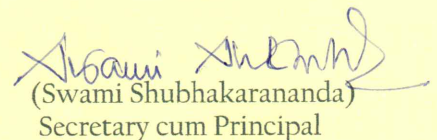 Swami
(Swami Shubhakarananda)
Secretary cum Principal